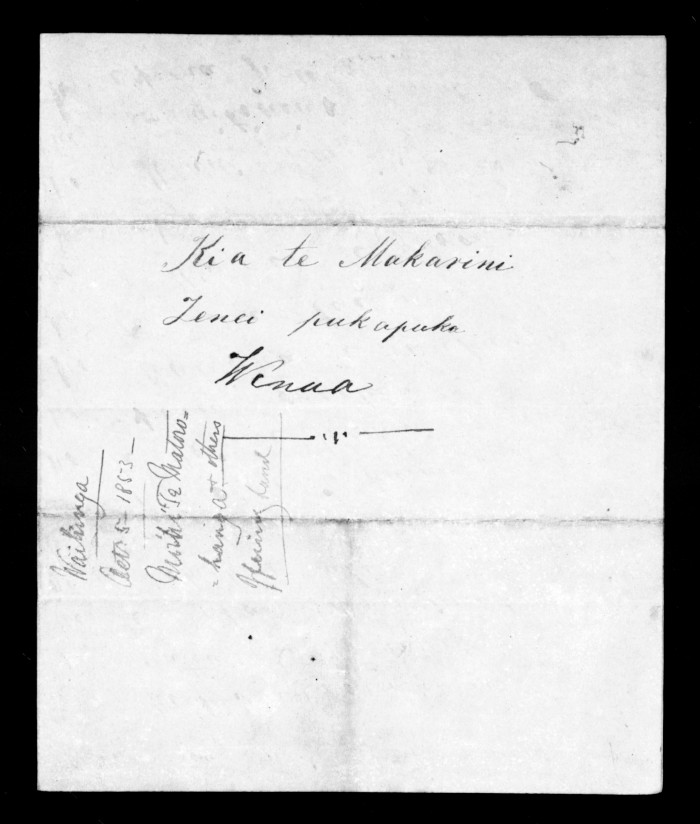 Kia te Makarini
Tenei pukapuka
Wenua
Waikinga
Octr 5 - 1853 -
Moihi Te Matoro=
=hanga & others
Offering land